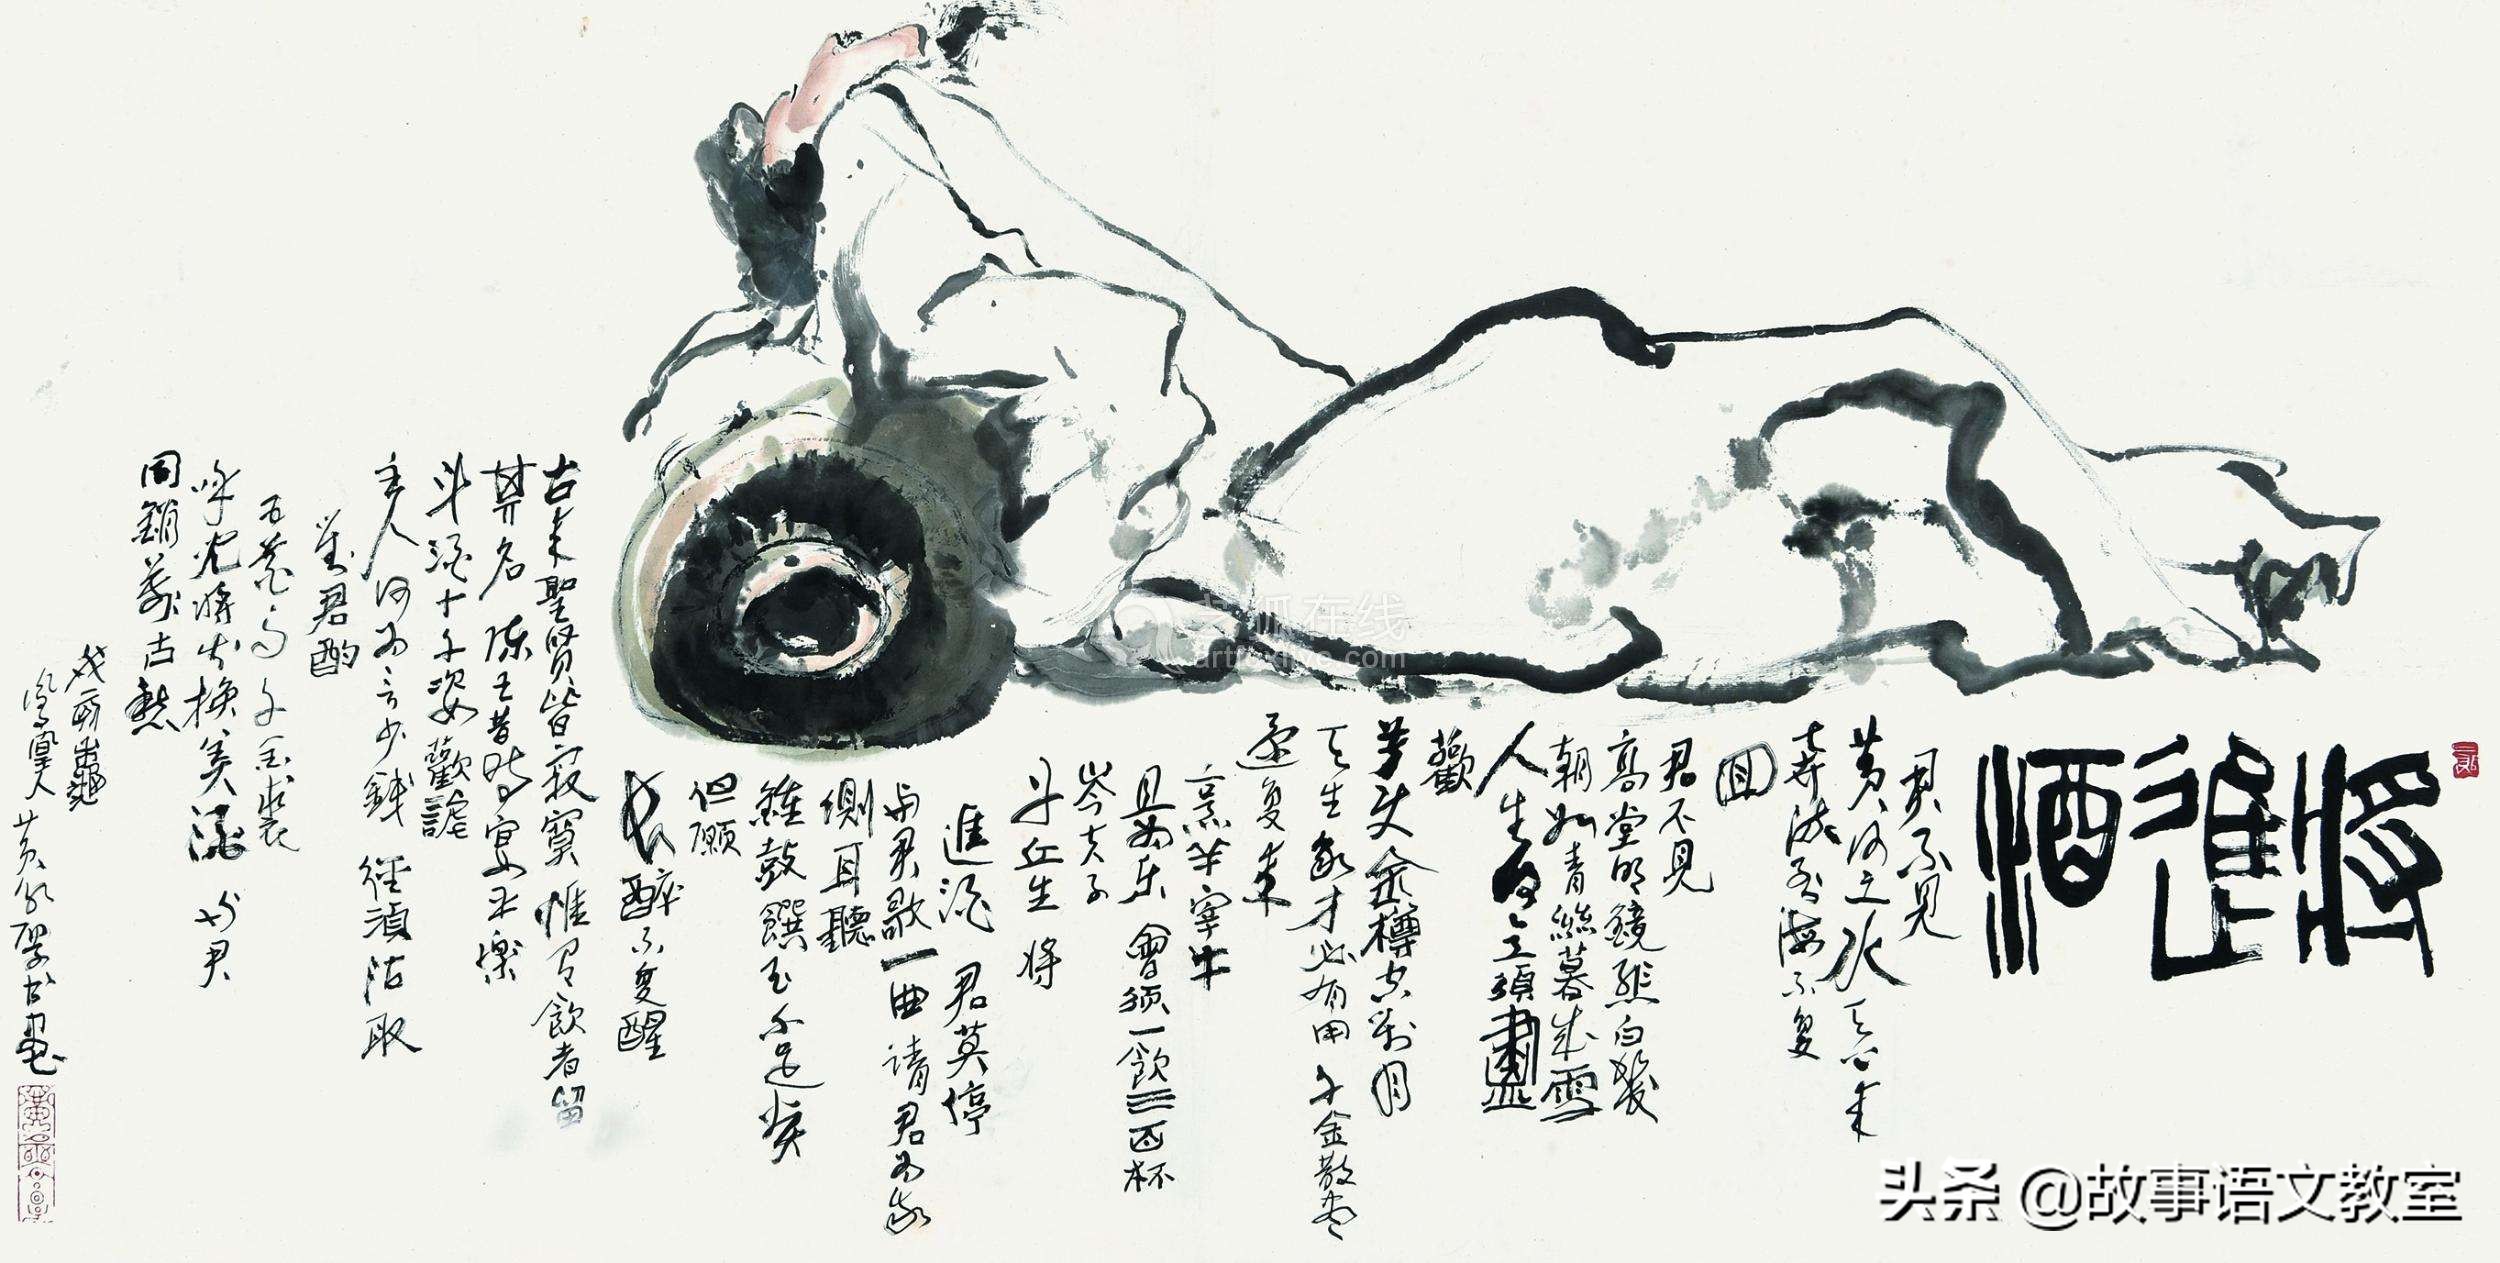 將進酒
君不見
黃河之水天上来
奔流到海不复
回
君不見
高堂明鏡悲白髮
朝如青絲暮成雪
人生得意須盡
歡
莫使金樽空對月
天生我才必有用千金散尽
還复来
烹羊宰牛
且为乐會须一飲三百杯
岑夫子
丹丘生將
進酒君莫停
与君歌一曲請君为我
側耳聽
鐘鼓饌玉不足貴
但願
長醉不复醒
古来聖贤皆寂寞惟有飲者留
其名陈王昔时宴平樂
斗酒十千姿歡謔
主人何为言少錢徑須沽取
對君酌
五花马千金裘
呼児將出换美酒与
同銷萬古愁
鳳凰人黃永厚书畫
艺狐在线
artfoxlive.com
头条 @故事语文教室